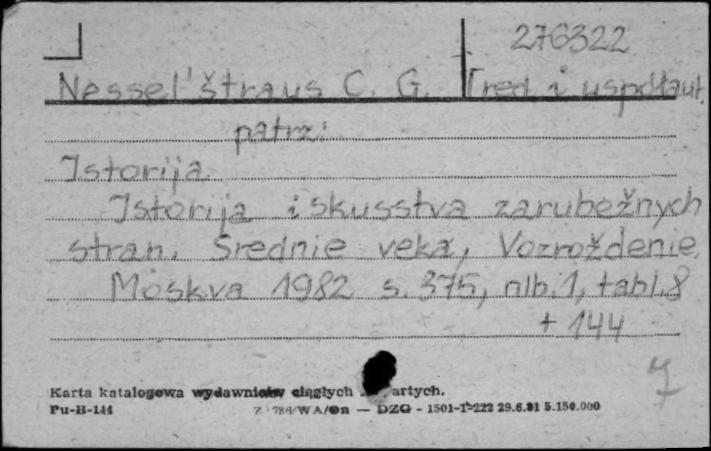 276322
Nessel'štraus C. G. [red. i współaut.
patrz:
Istorija
Istorija iskusstva zarubežnych
stran. Srednie veka, Vozroždenie.
Moskva 1982 s. 375, nlb. 1, tabl. 8
+ 144
Karta katalogowa wydawnictw ciągłych artych.
Pu-B-144 Z 786/WA/On — DZG - 1501-T-222 29.6.81 5.150.000